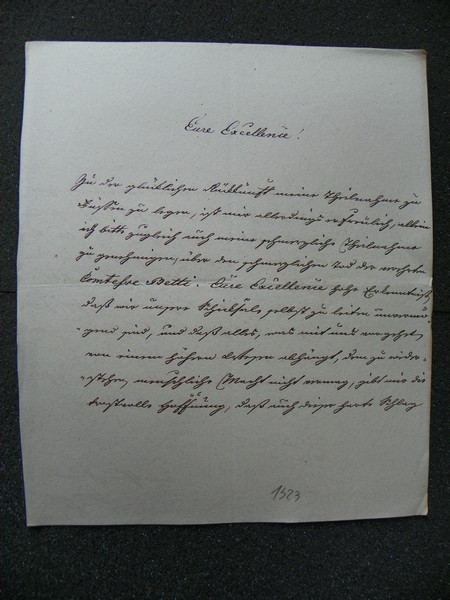 Eure Excellence!
Zu der glücklichen Rückkunft meine Theilnahme zu
Füssen zu legen, ist mir allerdings erfreulich, allein
ich bitte zugleich auch meine schmerzliche Theilnahme
zu genehmigen, über den schmerzlichen Tod der
Comtesse Betti. Eure Excellence hohe Erkenntniß,
daß wir unsere Schicksale selbst zu leiten unvermö-
gend sind, und daß alles, was mit uns vorgehet,
von einem höhern Wesen abhängt, dem zu wieder-
stehen, menschliche Macht nicht vermag, gibt mir die
trostvolle Hoffnung, daß auch dieser harte Schlag
1323